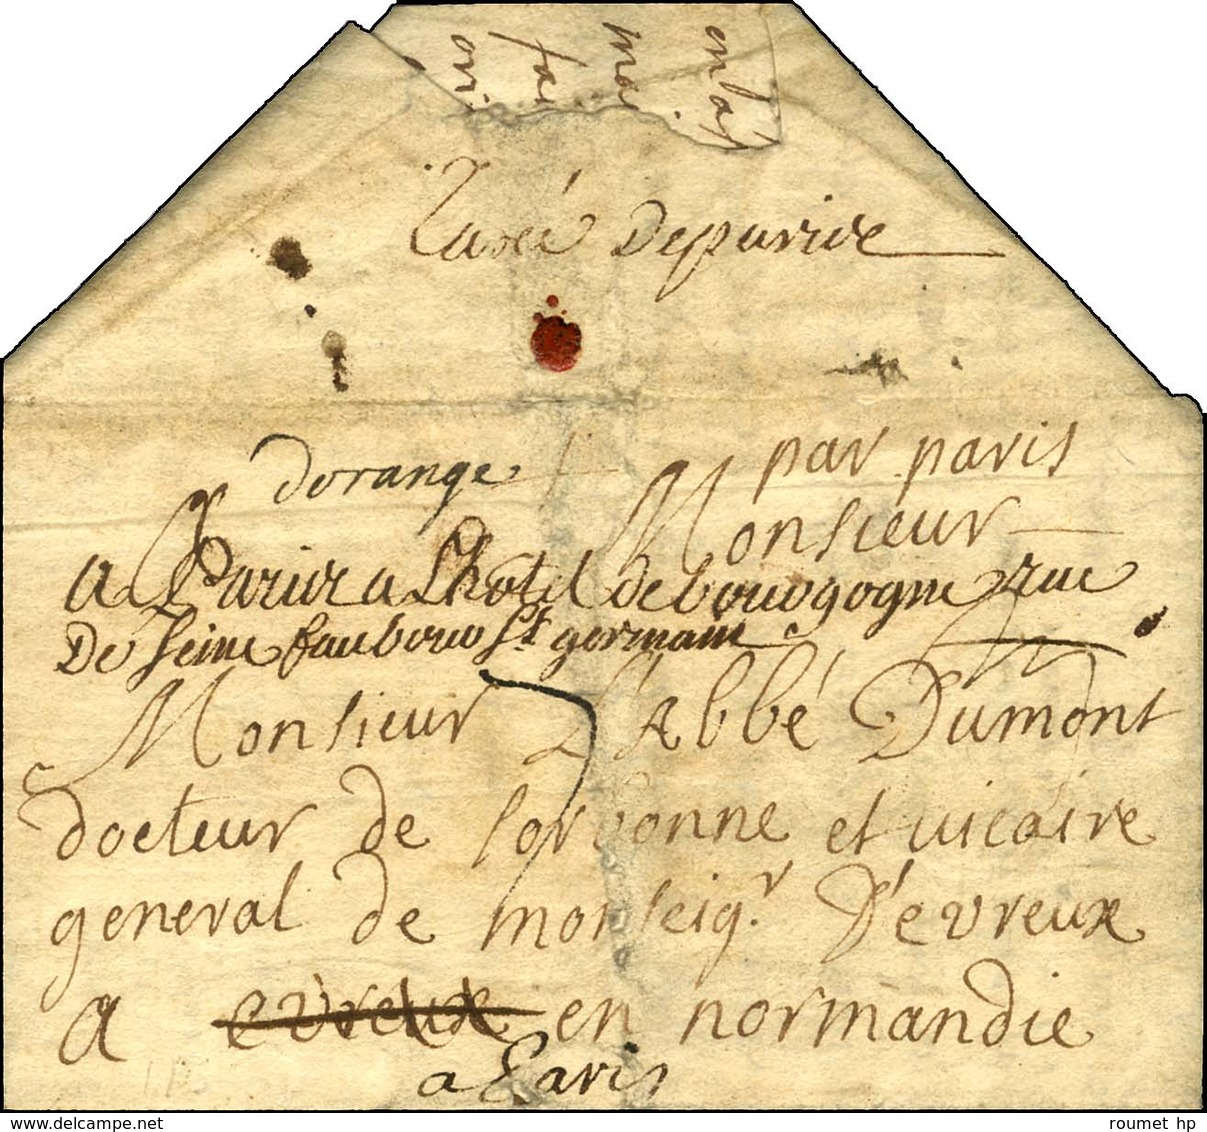 en la
ma
fa
ori
Taxé deparixe
par paris
dorange
Monsieur
a Parixe a Lhotel de bourgogne rue
De seine faubour St germain
Monsieur L'Abbé Dumont
docteur de sorbonne et vicaire
general de monseigr. D'évreux
a evreux en normandie
a Paris
delcampe.net
roumet hp